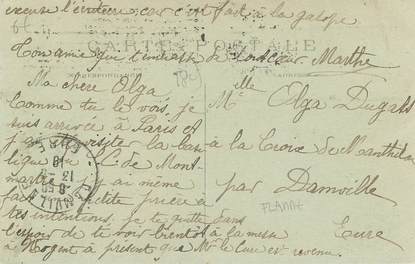 excuse l'écriture car c'est fait à la galope
Ton amie qui t'embrasse de tout cœur Marthe
CARTE POSTALE
CORRESPONDANCE
Ma chère Olga,
Comme tu le vois, je
suis arrivée à Paris et
j'ai visiter la basi
lique du S. C. de Mont-
martre j'y ai même
fait petite prière à
tes intentions. je te quitte dans
l'espoir de te voir bientôt à la messe
à Nogent à présent que Mr le Curé est revenu.
Mlle Olga Dugats
à la Croix de Manthelon
par Damville
Eure
PLANTE